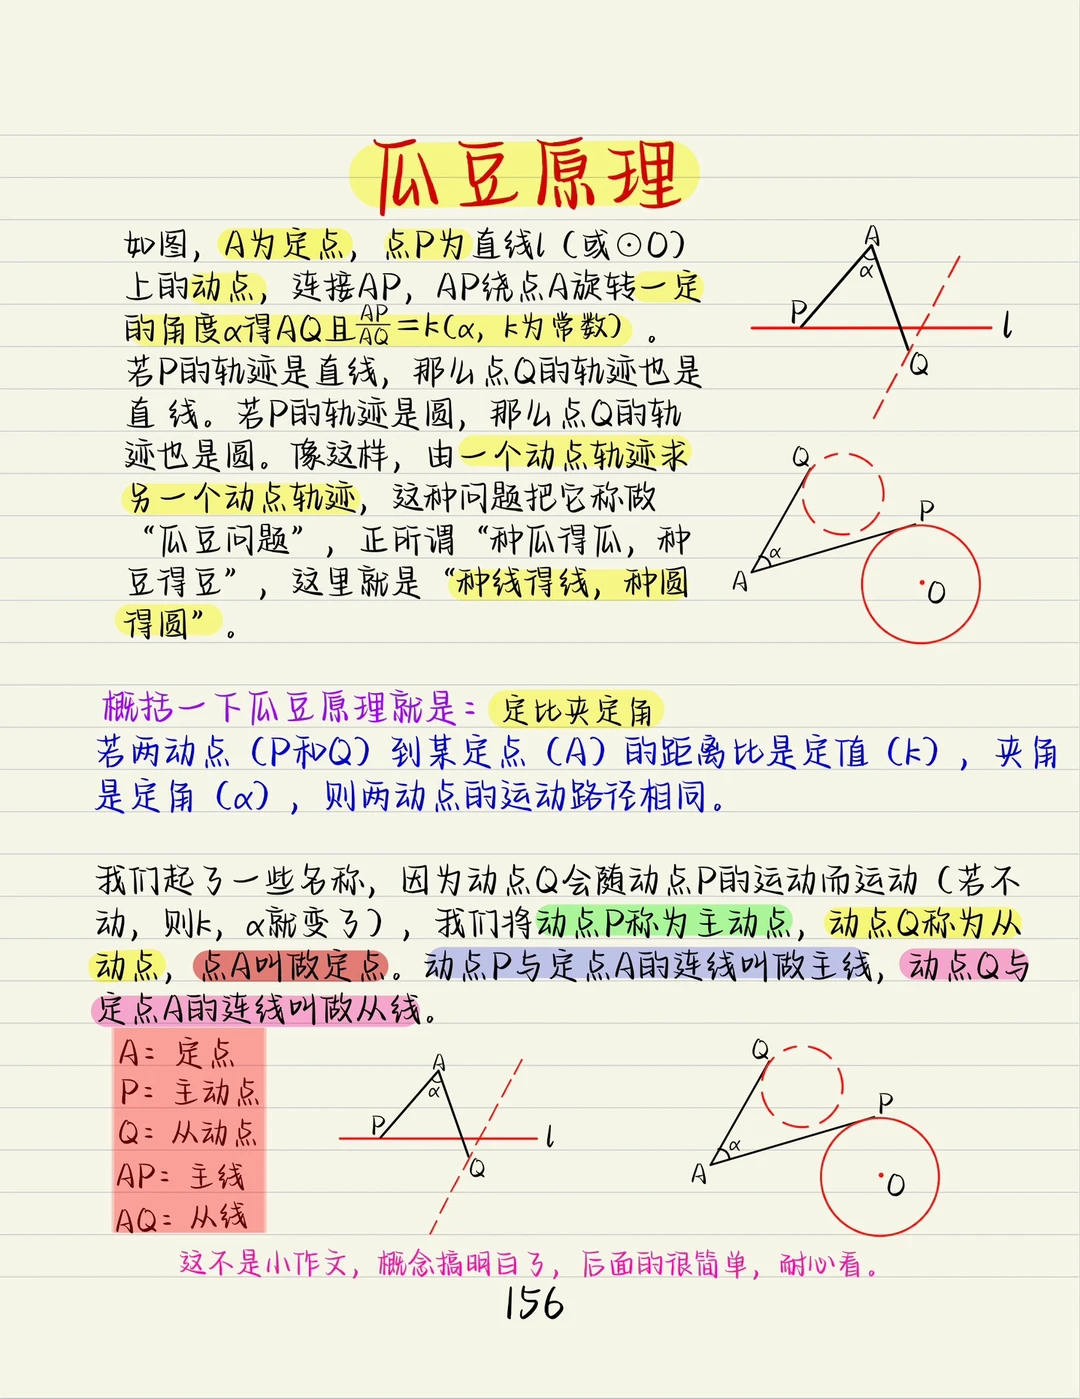 瓜豆原理
如图，A为定点，点P为直线l（或⊙O）
上的动点，连接AP，AP绕点A旋转一定
的角度α得AQ且AP/AQ=k(α，k为常数）。
若P的轨迹是直线，那么点Q的轨迹也是
直 线。若P的轨迹是圆，那么点Q的轨
迹也是圆。像这样，由一个动点轨迹求
另一个动点轨迹，这种问题把它称做
“瓜豆问题”，正所谓“种瓜得瓜，种
豆得豆”，这里就是“种线得线，种圆
得圆”。
A
α
P
l
Q
Q
P
α
A
O
概括一下瓜豆原理就是：定比夹定角
若两动点（P和Q）到某定点（A）的距离比是定值（k），夹角
是定角（α），则两动点的运动路径相同。
我们起了一些名称，因为动点Q会随动点P的运动而运动（若不
动，则k，α就变了），我们将动点P称为主动点，动点Q称为从
动点，点A叫做定点。动点P与定点A的连线叫做主线，动点Q与
定点A的连线叫做从线。
A：定点
P：主动点
Q：从动点
AP：主线
AQ：从线
A
α
P
l
Q
Q
P
α
A
O
这不是小作文，概念搞明白了，后面的很简单，耐心看。
156